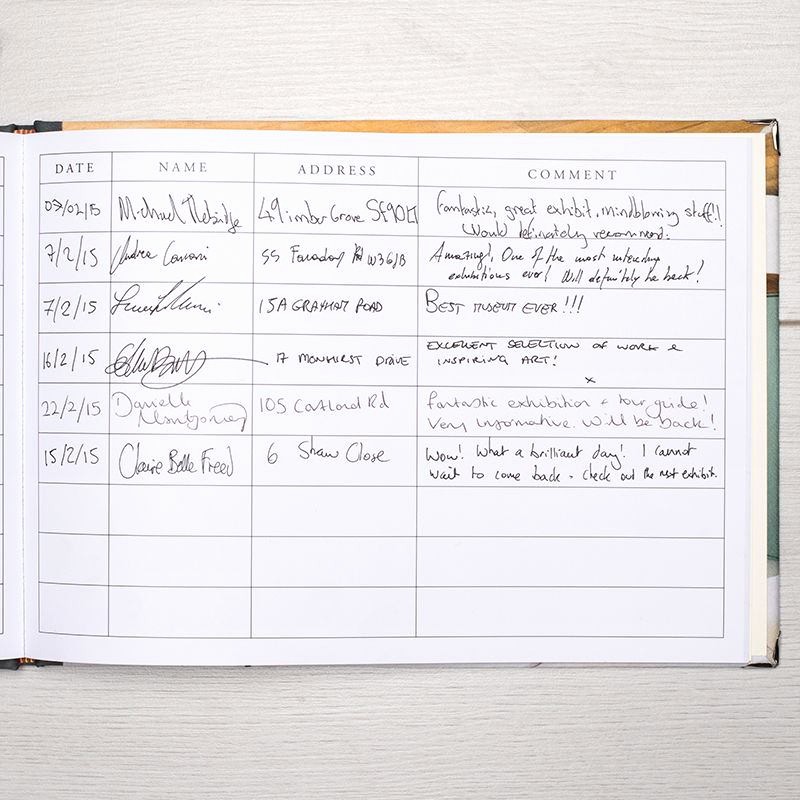 DATE NAME ADDRESS COMMENT
07/02/15 Michael 49 imber Grove Fantastic, great exhibit, mindblowing stuff!!
Would definately recommend.
7/2/15 Andrea 55 Faraday Rd W3 6JB Amazing! One of the most interesting
exhibitions ever! Will definitely be back!
7/2/15 15A GRAYHAM ROAD BEST MUSEUM EVER!!!
16/2/15 17 MONKHURST DRIVE EXCELLENT SELECTION OF WORK &
INSPIRING ART!
x
22/2/15 Danielle 105 Cortland Rd Fantastic exhibition + tour guide!
Montgomery Very informative. Will be back!
15/2/15 Claire Belle Freed 6 Shaw Close Wow! What a brilliant day! I cannot
wait to come back - check out the next exhibit.